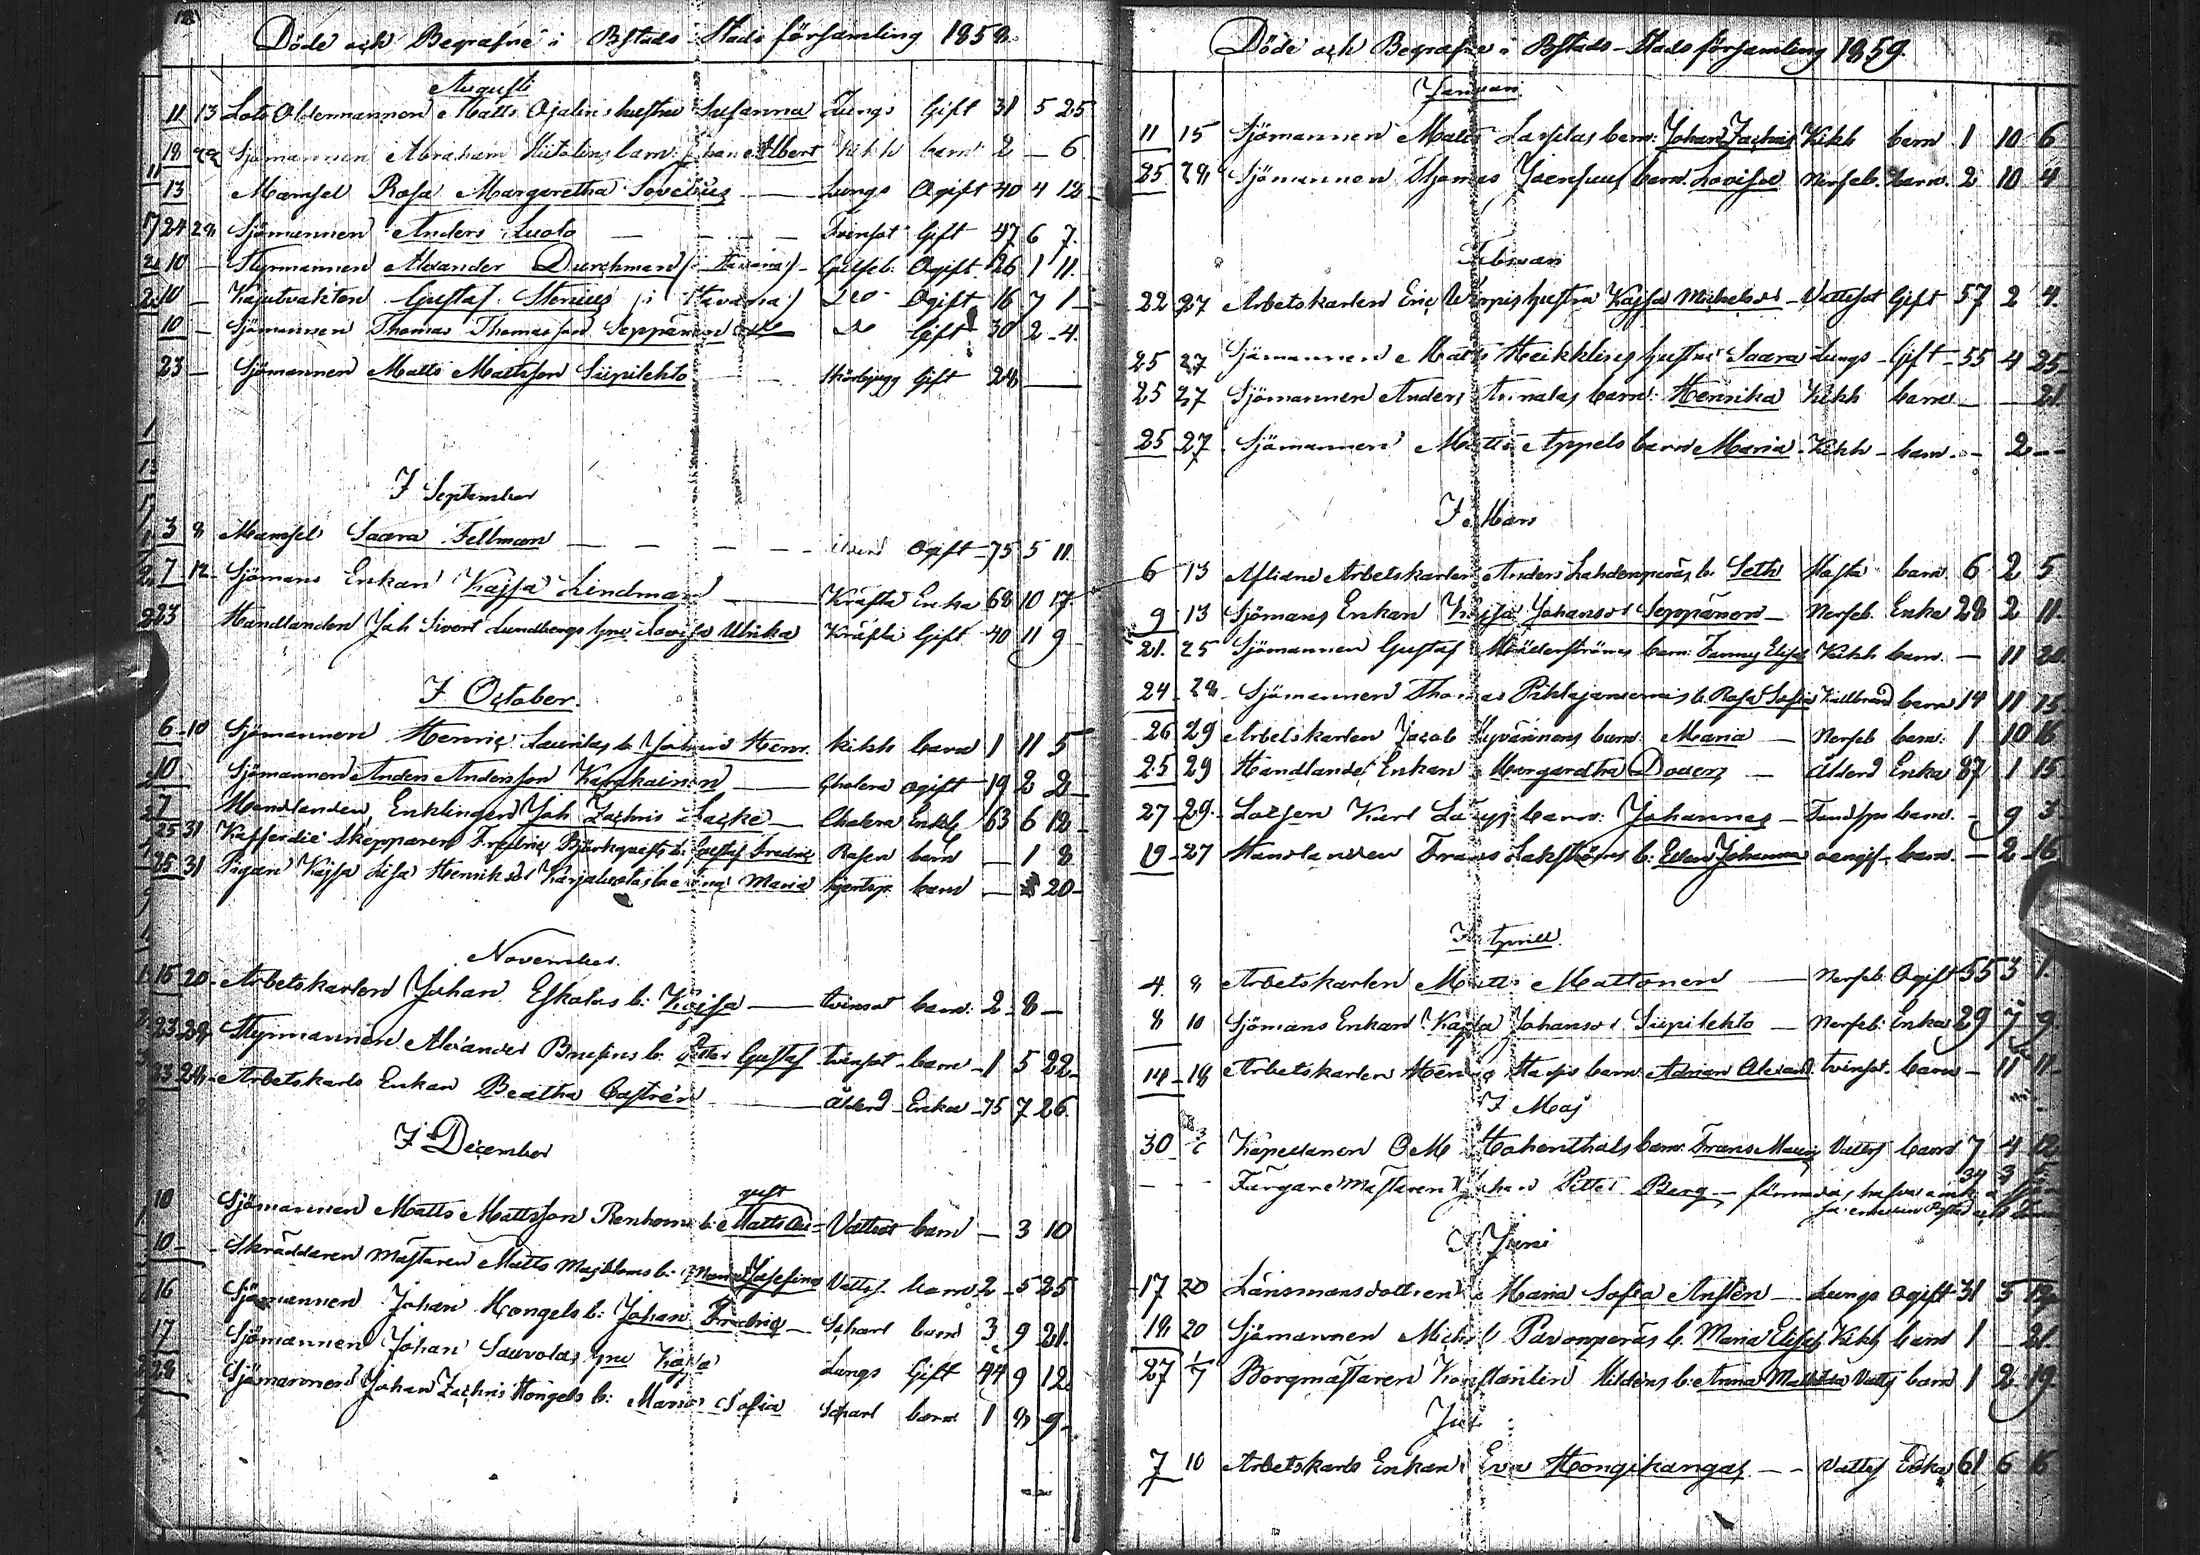 Döde och Begrafne i Bstads Stads församling 1858.
Augusti
11 13 Lots Oldermannen Matts Ojalins hustru Susanna Lungs Gift 31 5 25
18 22 Sjömannen Abraham barn Johan Albert Kikh barn 2 — 6
13 Mamsel Rosa Margaretha Lovelius — Lungs Ogift 40 4 12
24 28 Sjömannen Anders Luoto — — — Tvinsot Gift 47 6 7.
10 — Styrmannen Alexander Durchman (i Havana) — Gulfeb. Ogift 26 1 11.
10 — Kajutvakten Gustaf Stenius (i Havana) Do Ogift 16 7 1
10 — Sjömannen Thomas Thomasson Seppänen do Gift 30 2 4.
23 — Sjömannen Matts Mattsson Siipilehto Skörbjugg Gift 28 —
I September
3 8 Mamsel Saara Fellman — — — — Ogift 75 5 11.
7 12 Sjömans Enkan Kajsa Lindman — Kräfta Enka 68 10 17.
23 Handlanden Joh Sivert Lundbergs hru Lovisa Ulrika Kräfta Gift 40 11 9
I October.
6 10 Sjömannen Henric Laurilas b. Johan Henr. Kikh barn 1 11 5
10 Sjömannen Anders Andersson Karhkainen — Cholera ogift 19 2 2
7 Handlanden, Enklingen Joh Zachris Lacke — Cholera Enkl. 63 6 12
25 31 Kofferdie Skepparen Fredric Björkqvists b. Gustaf Fredric Rosen barn — 1 8
25 31 Pigan Kajsa Lisa Henriksdr Maria barn — 20
November.
15 20 Arbetskarlen Johan Eskolas b: Kajsa — tvinsot barn. 2 8 —
23 28 Styrmannen Alexander b. Peter Gustaf tvinsot barn 1 5 22
23 28 Arbetskarls Enkan Beatha Castrén — Ålderd Enka 75 7 26.
I December
10 Sjömannen Matts Mattsson Renholms b. Matts August Vattsot barn — 3 10
10 — Skräddaren Mästaren Matts b. Maria Josefina Vatts. barn 2 5 25
16 Sjömannen Johan Hongels b: Johan Fredric — Scharl barn 3 9 21.
17 Sjömannen Johan Sauvolas hru Kajsa Lungs Gift 44 9 12
28 Sjömannen Johan Zachris Hongels b: Maria Sofia Scharl barn 1 8 9
Döde och Begrafne i Bstads Stads församling 1859.
Januari
11 15 Sjömannen Matts Lassilas barn: Johan Zachris Kikh barn 1 10 6
25 28 Sjömannen Thomas barn: Lovisa Nerfeb. barn. 2 10 4
Februari
22 27 Arbetskarlen Eric hustru Kajsa Michelsdr — Vattsot Gift 57 2 4.
25 27 Sjömannen Matts Heikkles hustru Saara Lungs Gift 55 4 25
25 27 Sjömannen Anders barn: Henrika Kikh barn — — 21.
25 27 Sjömannen Matts Appels barn Maria Kikh barn — 2 —
I Mars
6 13 Aflidne Arbetskarlen Anders Lahdenperäs b. Seth Hosta barn 6 2 5
9 13 Sjömans Enkan Kajsa Johansdr Seppänen — Nerfeb. Enka 28 2 11.
21. 25 Sjömannen Gustaf barn: Fanny Elisab Kikh barn. — 11
24 28 Sjömannen Thomas b. Rosa Sofia Kallbrand barn 14 11 15
26 29 Arbetskarlen Jacob Hyvännens barn: Maria — Nerfeb barn. 1 10 16
25 29 Handlands Enkan Margaretha — Ålderd Enka 87 1 15
27 29. Lotsen Karl barn: Johannes — barn. — 9 3
19 27 Handlanden Frans b: Johanna barn. — 2 16
I Aprill.
4. 8 Arbetskarlen Matts Mattonen — Nerfeb. Ogift 55 3 1.
8 10 Sjömans Enkan Kajsa Johansdr Siipilehto — Nerfeb. Enka 29 7 9
14 18 Arbetskarlen Henric barn: Adrian Alexand. tvinsot. barn — 11 11
I Maj
30 Kapellanen O M Hohenthals barn: Frans Mauriz Vatts barn 7 4 12
— — Färgare Mästaren Johan Petter Berg —
I Juni
17 20 Länsmansdottren Maria Sofia Anstén — Lungs Ogift 31 5
18 20 Sjömannen Michel Pavonperäs b. Maria Elisab. Kikh barn 1 — 21.
27 Borgmästaren Konstantin b: Anna Mathilda Vatts barn 1 2 19.
Juli
7 10 Arbetskarls Enkan Eva Hongikangas — — Vatts Enka 61 6 16